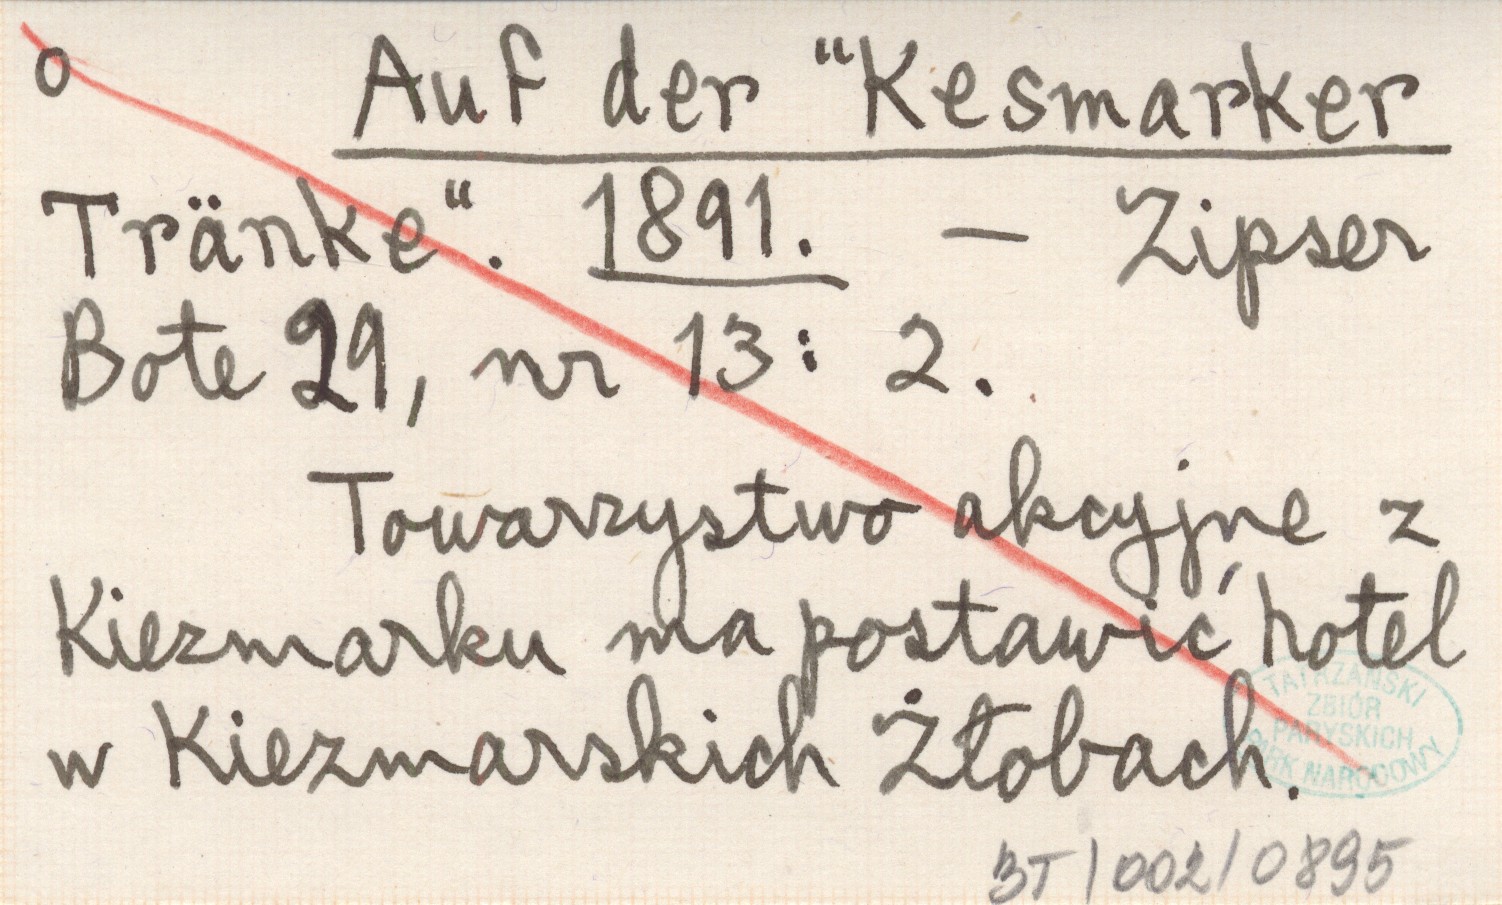 o Auf der "Kesmarker
Tränke". 1891. — Zipser
Bote 29, nr 13: 2.
Towarzystwo akcyjne z
Kiezmarku ma postawić hotel
w Kiezmarskich Żłobach.
TATRZAŃSKI
ZBIÓR
PARYSKICH
PARK NARODOWY
BT/002/0895